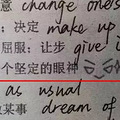 意 change one's
；决定 make up
屈服；让步 give i
个坚定的眼神
as usual
做某事 dream of